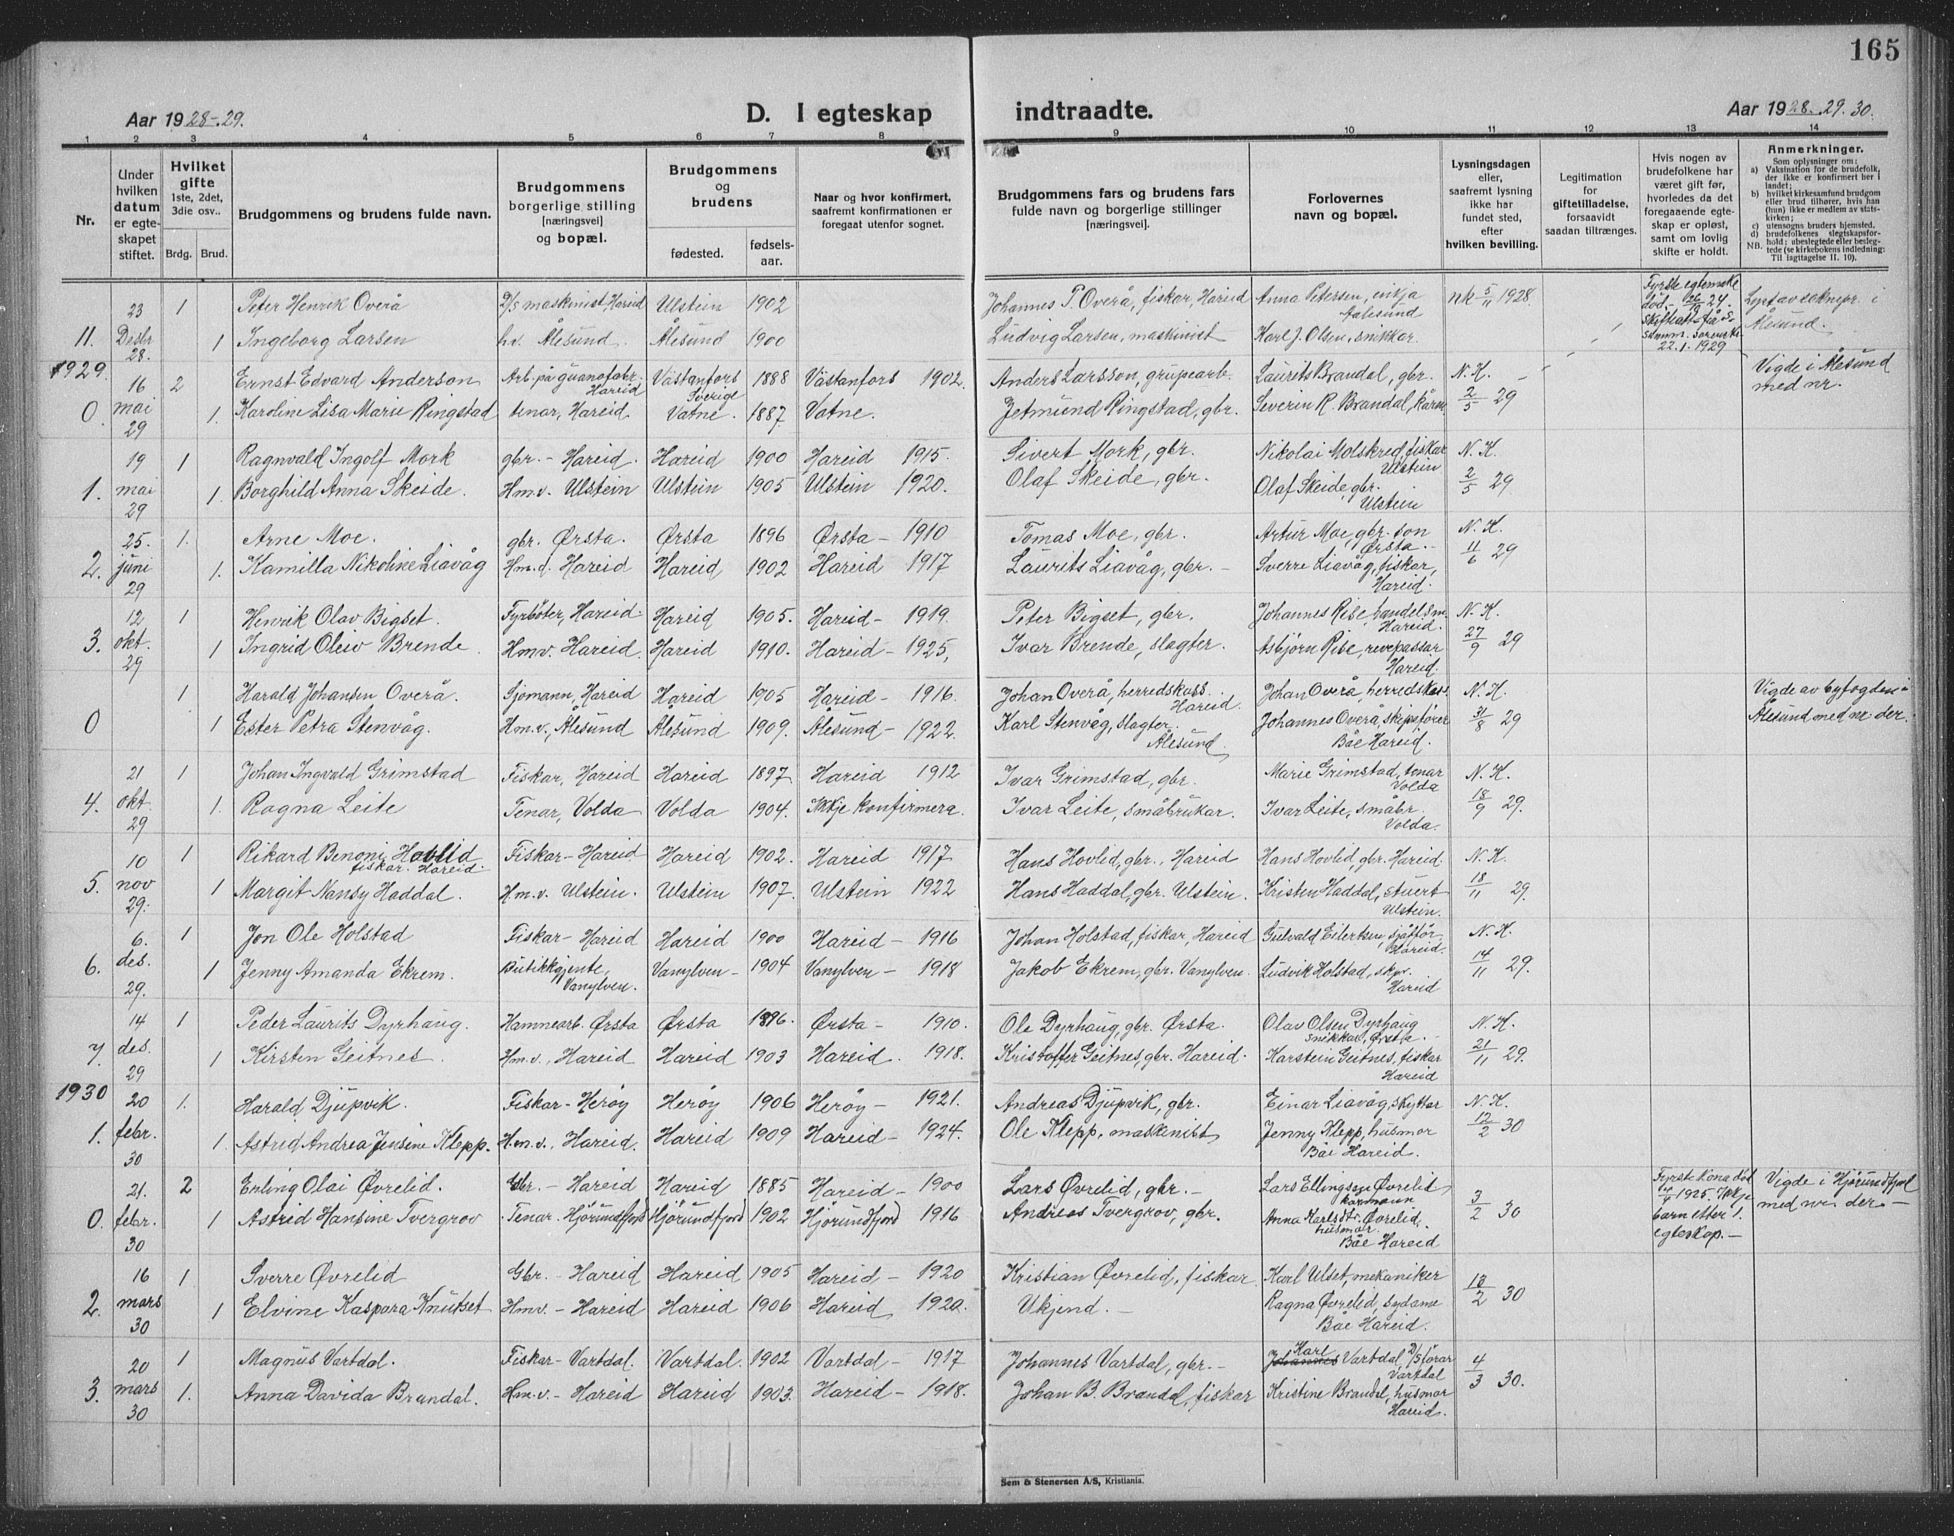 165
Aar 1928-29.
D. I egteskap
indtraadte.
Aar 1928. 29. 30.
1 2 3 4 5 6 7 8 9 10 11 12 13 14
Nr.
Under hvilken datum er egte-skapet stiftet.
Hvilket gifte 1ste, 2det, 3die osv..
Brdg. Brud.
Brudgommens og brudens fulde navn.
Brudgommens borgerlige stilling [næringsvei] og bopæl.
Brudgommens og brudens
fødested. fødsels-aar.
Naar og hvor konfirmert, saafremt konfirmationen er foregaat utenfor sognet.
Brudgommens fars og brudens fars fulde navn og borgerlige stillinger [næringsvei]
Forlovernes navn og bopæl.
Lysningsdagen eller, saafremt lysning ikke har fundet sted, efter hvilken bevilling.
Legitimation for giftetilladelse, forsaavidt saadan tiltrænges.
Hvis nogen av brudefolkene har været gift før, hvorledes da det foregaaende egte-skap er opløst, samt om lovlig skifte er holdt.
Anmerkninger.
Som oplysninger om:
a) Vaksination for de brudefolk, der ikke er konfirmert her i landet;
b) hvilket kirkesamfund brudgom eller brud tilhører, hvis han (hun) ikke er medlem av stats-kirken;
c) utensogns bruders hjemsted.
d) brudefolkenes slegtskapsfor-hold: ubeslegtede eller besleg-tede (se kirkebokens indledning:
NB. Til iagttagelse II. 10).
23 1 Peter Henrik Overå D/S maskinist, Hareid Ulstein 1902 Johannes T. Overå, fiskar, Hareid Anna Petersen, enkja Aalesund nk 5/11 1928. Fyrste egtemake død 26/9 24. Lyst av soknepr. i Ålesund.
11. Desbr 28. 1 Ingeborg Larsen hv. Ålesund. Ålesund 1900 Ludvig Larsen, maskinist Karl J. Olsen, snikkar 22.1.1929
1929
16 2 Ernst Edvard Anderson Arb. på guanofabr. Hareid Västanfors Sverige 1888 Västanfors 1902. Anders Larsson, grupearb. Laurits Brandal, gbr. N. K. Vigde i Ålesund med nr.
0. mai 29 1. Karoline Lisa Marie Ringstad tenar, Hareid. Vatne. 1887 Vatne. Jetmund Ringstad, gbr. Severin R. Brandal, kårm 2/5 29
19 1 Ragnvald Ingolf Mork gbr. - Hareid. Hareid 1900 Hareid 1915. Sivert Mork, gbr. Nikolai Molskred, fiskar Ulstein N. K.
1. mai 29 1 Borghild Anna Skeide. Hm.v. Ulstein Ulstein 1905 Ulstein 1920. Olaf Skeide, gbr. Olaf Skeide, gbr. Ulstein 2/5 29
25. 1. Arne Moe. gbr. Ørsta. Ørsta 1896 Ørsta - 1910 Tomas Moe, gbr. Artur Moe, gbr. son Ørsta. N. K.
2. juni 29 1. Kamilla Nikoline Liavåg Hm.d. Hareid Hareid 1902 Hareid 1917 Laurits Liavåg, gbr. - Sverre Liavåg, fiskar, Hareid. 11/6 29
12 1 Henrik Olav Bigset. Fyrbøter, Hareid. Hareid 1905. Hareid - 1919. Peter Bigset, gbr. Johannes Rise, handelsm. Hareid. N. K.
3. okt. 29 1 Ingrid Oleiv Brende. Hm.v. Hareid. Hareid 1910. Hareid - 1925, Ivar Brende, slagter. Asbjørn Rise, revepassar Hareid. 27/9 29
1 Harald Johansen Overå. Sjømann, Hareid Hareid 1905 Hareid - 1916. Johan Overå, herredskass. Hareid. Johan Overå, herredskass N. K. Vigde av byfogden i Ålesund med nr der.
0 1 Ester Petra Stenvåg. Hm.v., Ålesund Ålesund 1909. Ålesund - 1922. Karl Stenvåg, slagter. Ålesund Johannes Overå, skipsfører Båe Hareid. 31/8 29
21 1 Johan Ingvald Grimstad Fiskar, Hareid Hareid 1897 Hareid 1912 Ivar Grimstad, gbr. Marie Grimstad, tenar Volda N. K.
4. okt. 29 1. Ragna Leite Tenar, Volda Volda 1904. Ikkje konfirmera. Ivar Leite, småbrukar. Ivar Leite, småbr. Volda. 18/9 29.
10 1 Rikard Benoni Hovlid fiskar. Hareid. Fiskar - Hareid Hareid 1902. Hareid 1917 Hans Hovlid, gbr., Hareid Hans Hovlid, gbr. Hareid. N. K.
5. nov 29. 1 Margit Nansy Haddal. Hm.v. Ulstein. Ulstein 1907. Ulstein 1922 Hans Haddal, gbr. Ulstein. Kristen Haddal, stuert Ulstein. 18/11 29.
6. 1 Jon Ole Holstad Fiskar - Hareid Hareid 1900 Hareid - 1916 Johan Holstad, fiskar, Hareid Gulvald Eilertsen, sjåfør. Hareid. N. K.
6. des. 29. 1 Jenny Amanda Ekrem. Butikkgjente, Vanylven. Vanylven - 1904 Vanylven - 1918 Jakob Ekrem, gbr. Vanylven. Ludvik Holstad, skpr. Hareid 14/11 29.
14 1 Peder Laurits Dyrhaug. Hamnearb. Ørsta Ørsta 1896. Ørsta - 1910. Ole Dyrhaug, gbr. Ørsta. Olav Olsen Dyrhaug snikkar, Ørsta. N. K.
7. des. 29 1 Kirsten Geitnes. Hm.v., Hareid Hareid 1903 Hareid. 1918. Kristoffer Geitnes, gbr. Hareid. Karstein Geitnes, fiskar Hareid 21/11 29.
1930
20 1. Harald Djupvik. Fiskar - Herøy Herøy 1906 Herøy - 1921. Andreas Djupvik, gbr. Einar Liavåg, skyttar N. K.
1. febr. 30 1. Astrid Andrea Jensine Klepp. Hm.v., Hareid. Hareid 1909 Hareid - 1924. Ole Klepp, maskinist Jenny Klepp, husmor Båe Hareid. 12/2 30
21. 2 Erling Olai Øvrelid. Gbr. - Hareid Hareid 1885 Hareid - 1900 Lars Øvrelid, gbr. - Lars Ellingsen Øvrelid kårmann 3/2 30 Fyrste kona død 14/9 1925. Ikkje barn etter 1. egteskap. - Vigde i Hjørundfjord med nr der -
0. febr. 30 1 Astrid Hansine Tvergrov Tenar. Hjørundfjord Hjørundfjord 1902 Hjørundfjord 1916 Andreas Tvergrov, gbr. Anna Karlsdtr. Øvrelid, husmor. Båe Hareid
16 1. Sverre Øvrelid Gbr. - Hareid Hareid 1905 Hareid - 1920 Kristian Øvrelid, fiskar Karl Ulset, mekaniker 18/2 30
2. mars 30 1 Elvine Kaspara Knutset Hmv. - Hareid Hareid 1906 Hareid 1920. Ukjend. - Ragna Øvrelid, sydame Båe Hareid.
20 1 Magnus Vartdal. Fiskar - Vartdal. Vartdal. 1902 Vartdal - 1917 Johannes Vartdal, gbr. - Karl Johannes Vartdal, D/S førar Vartdal 4/3 30.
3. mars 30 1. Anna Davida Brandal. Hm.v. - Hareid Hareid 1903. Hareid - 1918. Johan B. Brandal, fiskar Kristine Brandal, husmor Hareid.
Sem & Stenersen A/S, Kristiania.